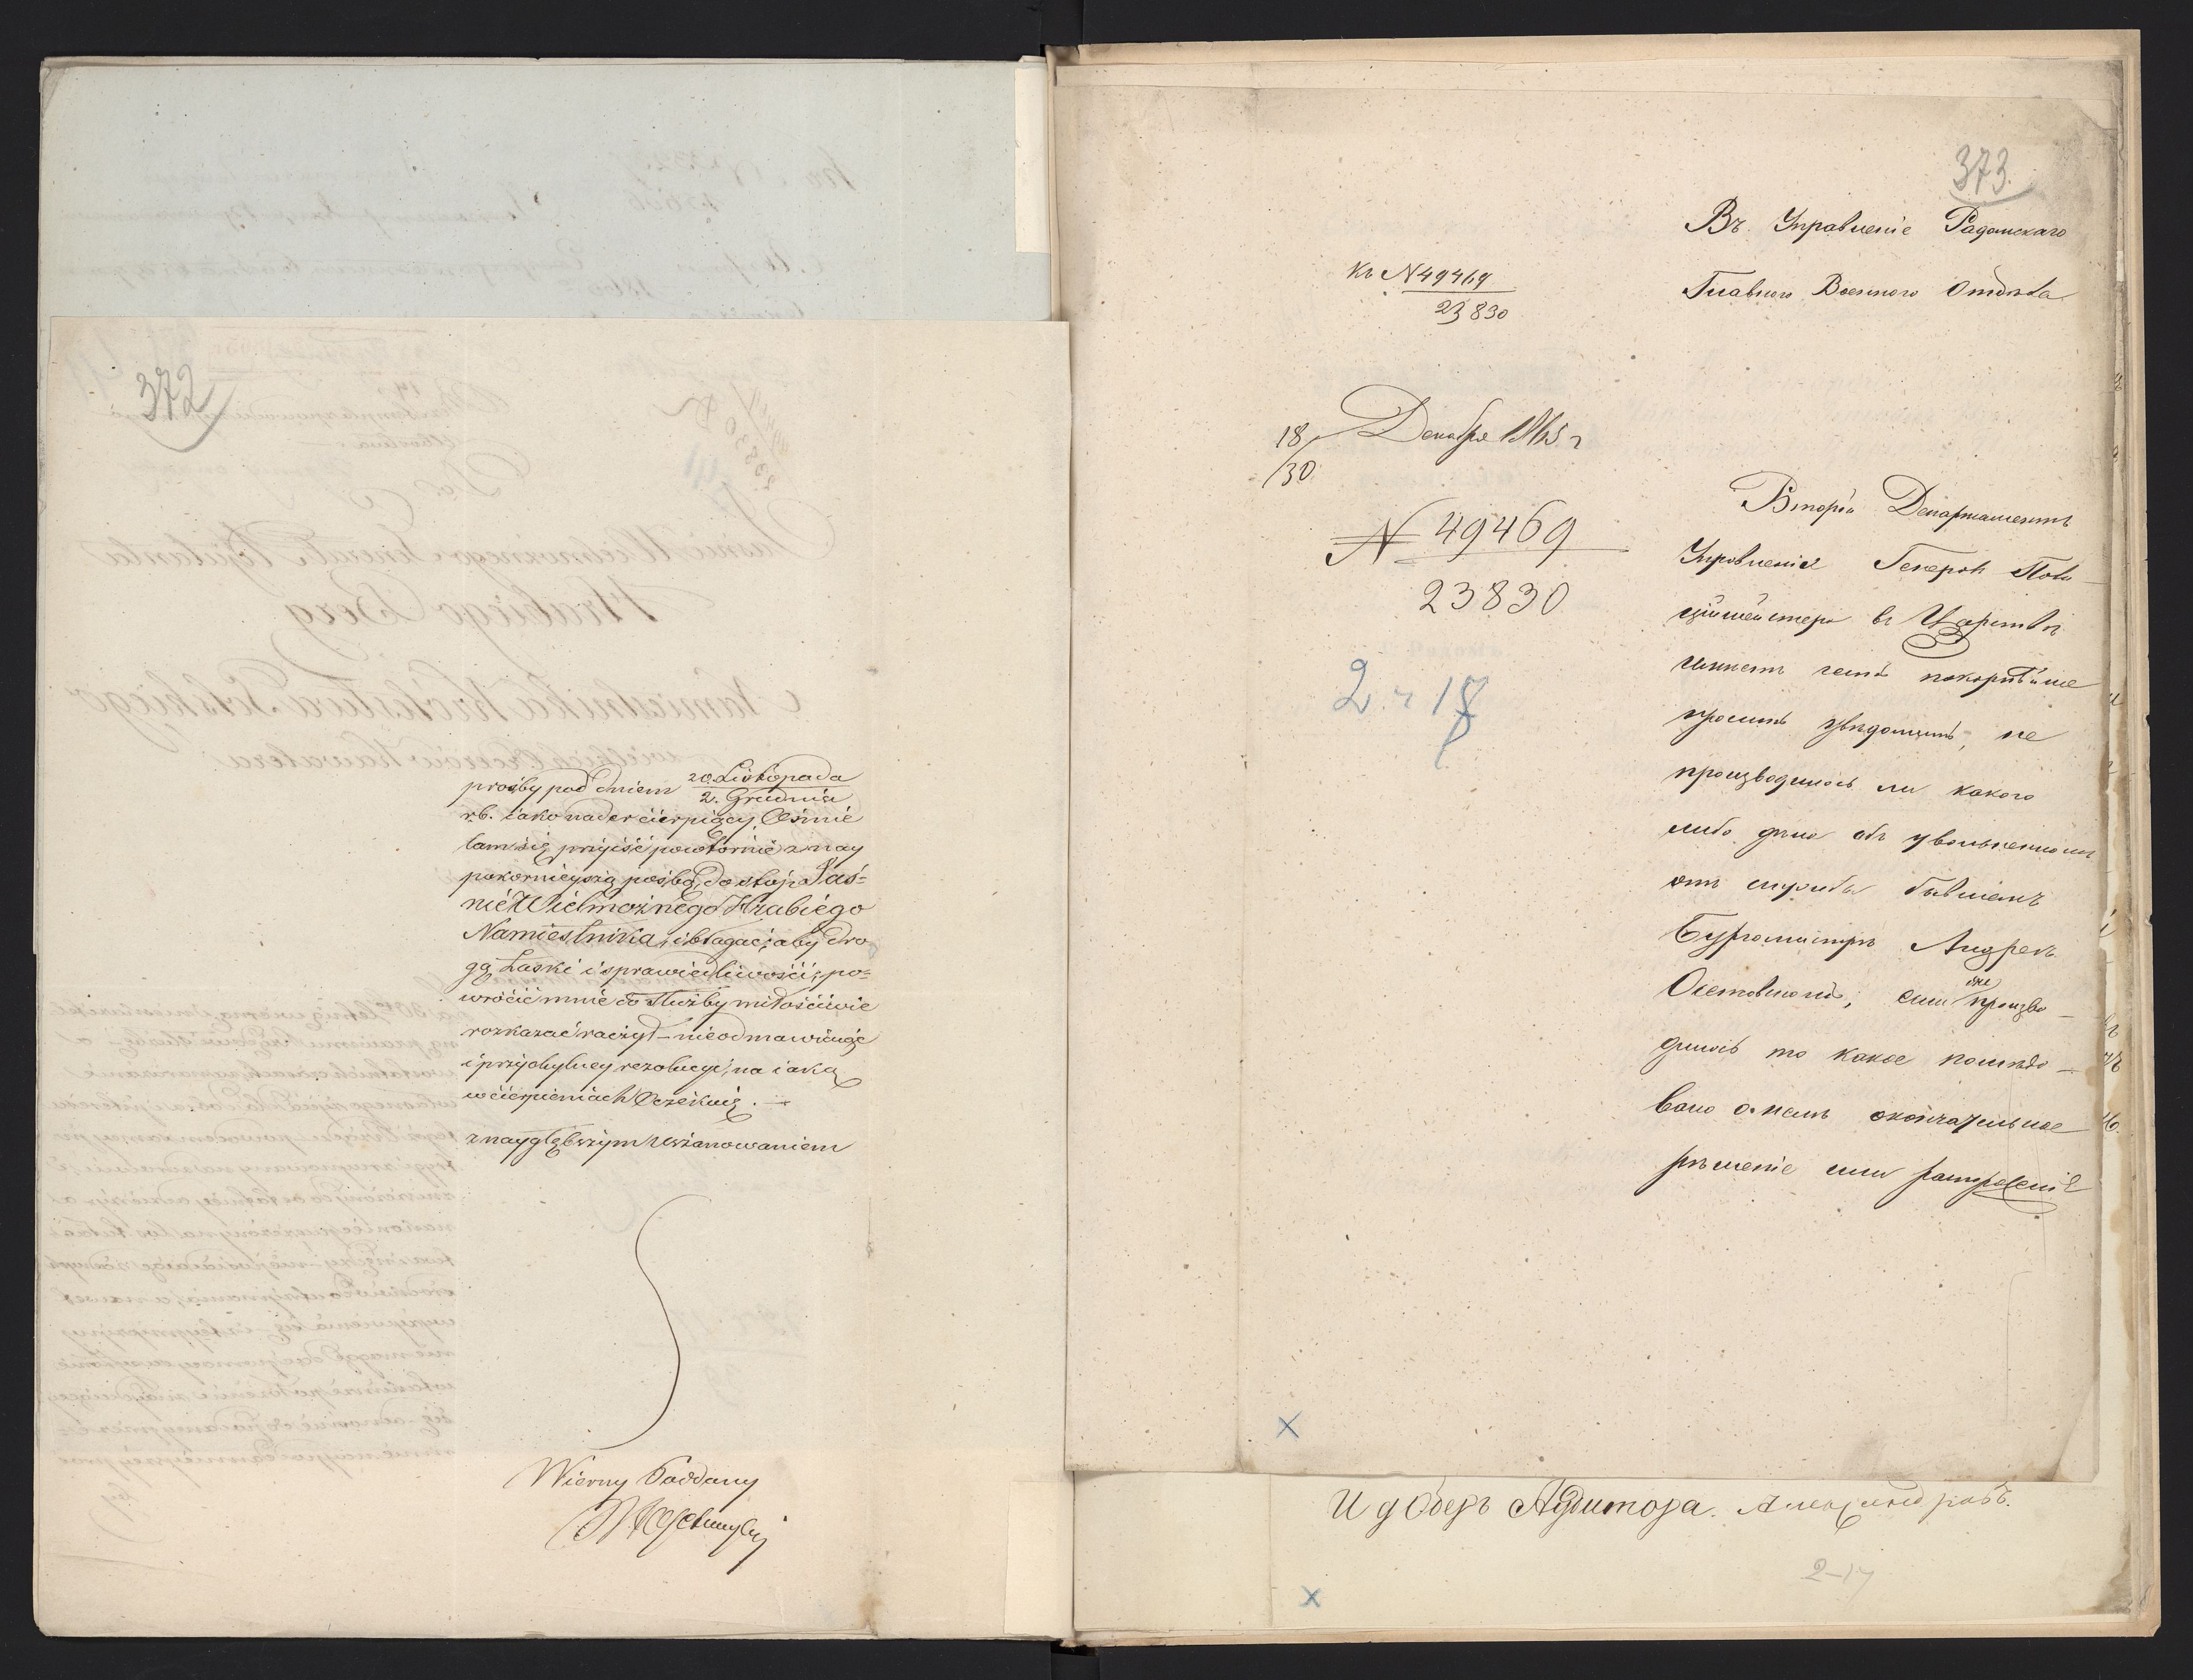 372
prośby pod dniem 20. Listopada
2. Grudnia
r.b. iako nader cierpiący, Ośmie
lam się przyiść powtornie z nay
pokornieyszą prośbą, do stóp Jaś=
nie Wielmożnego Hrabiego
Namiestnika, i błagać, aby dro
gą Łaski i sprawiedliwości, po=
wrócić mnie do służby miłościwie
rozkazać raczył – nieodmawiaiąc
i przychylney rezolucyi, na iaką
w cierpieniach Oczekuię. —
z naygłębszym uszanowaniem
Wierny Poddany
373.
Въ Управленіе Радомскаго
Главнаго Военнаго Отдѣла
къ N 49469
23830
18/30 Декабря 1865 г
N 49469
23830
2 ч 17
Второй Департаментъ
Управленія Генерал Поли
ціймейстера въ Царствѣ
имѣетъ честь покорнѣйше
просить увѣдомить, не
производилось ли какого
либо дѣла объ уволенномъ
отъ службы бывшемъ
Бургомистрѣ Андреѣ
если же произво
дилось то какое послѣдо
вало о немъ окончательное
рѣшеніе или распоряженіе
И д Оберъ Аудитора. Александровъ.
2-17